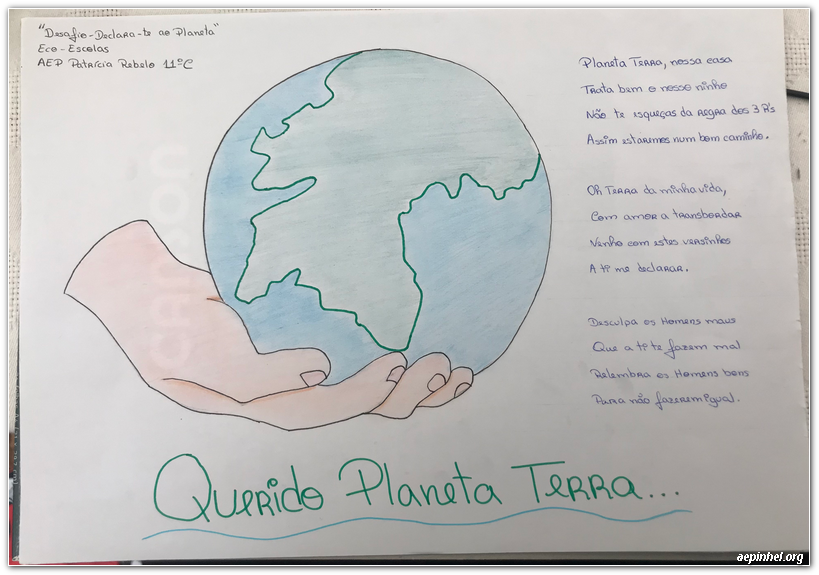 "Desafio-Declara-te ao Planeta"
Eco-Escolas
AEP Patrícia Rebelo 11ºC
Planeta Terra, nossa casa
Trata bem o nosso ninho
Não te esqueças da regra dos 3 R's
Assim estaremos num bom caminho.
Oh Terra da minha vida,
Com amor a transbordar
Venho com estes versinhos
A ti me declarar.
Desculpa os Homens maus
Que a ti te fazem mal
Relembra os Homens bons
Para não fazerem igual.
Querido Planeta Terra...
canson
aepinhel.org